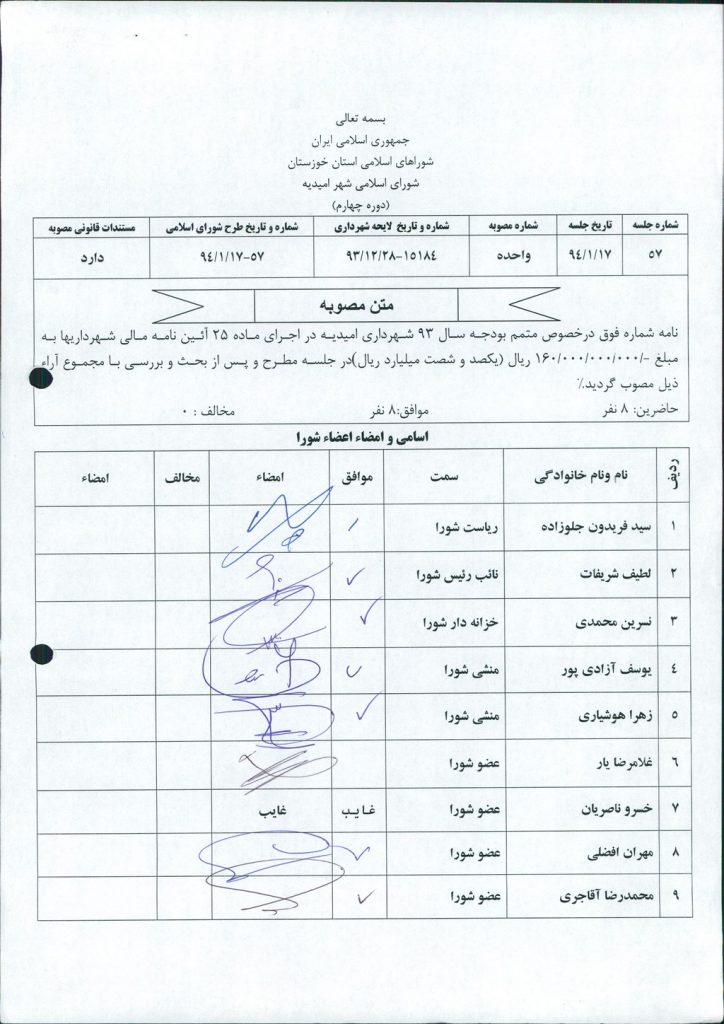 بسمه تعالی
جمهوری اسلامی ایران
شوراهای اسلامی استان خوزستان
شورای اسلامی شهر امیدیه
(دوره چهارم)
شماره جلسه تاریخ جلسه شماره مصوبه شماره و تاریخ لایحه شهرداری شماره و تاریخ طرح شورای اسلامی مستندات قانونی مصوبه
۵۷ ۹٤/۱/۱۷ واحده ۹۳/۱۲/۲۸-۱۵۱۸٤ ۹٤/۱/۱۷-۵۷ دارد
متن مصوبه
نامه شماره فوق درخصوص متمم بودجه سال ۹۳ شهرداری امیدیه در اجرای ماده ۲۵ آئین نامه مالی شهرداریها به
مبلغ -/۱۶۰/۰۰۰/۰۰۰/۰۰۰ ریال (یکصد و شصت میلیارد ریال)در جلسه مطرح و پس از بحث و بررسی با مجموع آراء
ذیل مصوب گردید.٪
حاضرین: ۸ نفر موافق:۸ نفر مخالف : ۰
اسامی و امضاء اعضاء شورا
ردیف نام ونام خانوادگی سمت موافق امضاء مخالف امضاء
۱ سید فریدون جلوزاده ریاست شورا
۲ لطیف شریفات نائب رئیس شورا
۳ نسرین محمدی خزانه دار شورا
٤ یوسف آزادی پور منشی شورا
۵ زهرا هوشیاری منشی شورا
٦ غلامرضا یار عضو شورا
۷ خسرو ناصریان عضو شورا غایب غایب
۸ مهران افضلی عضو شورا
۹ محمدرضا آقاجری عضو شورا